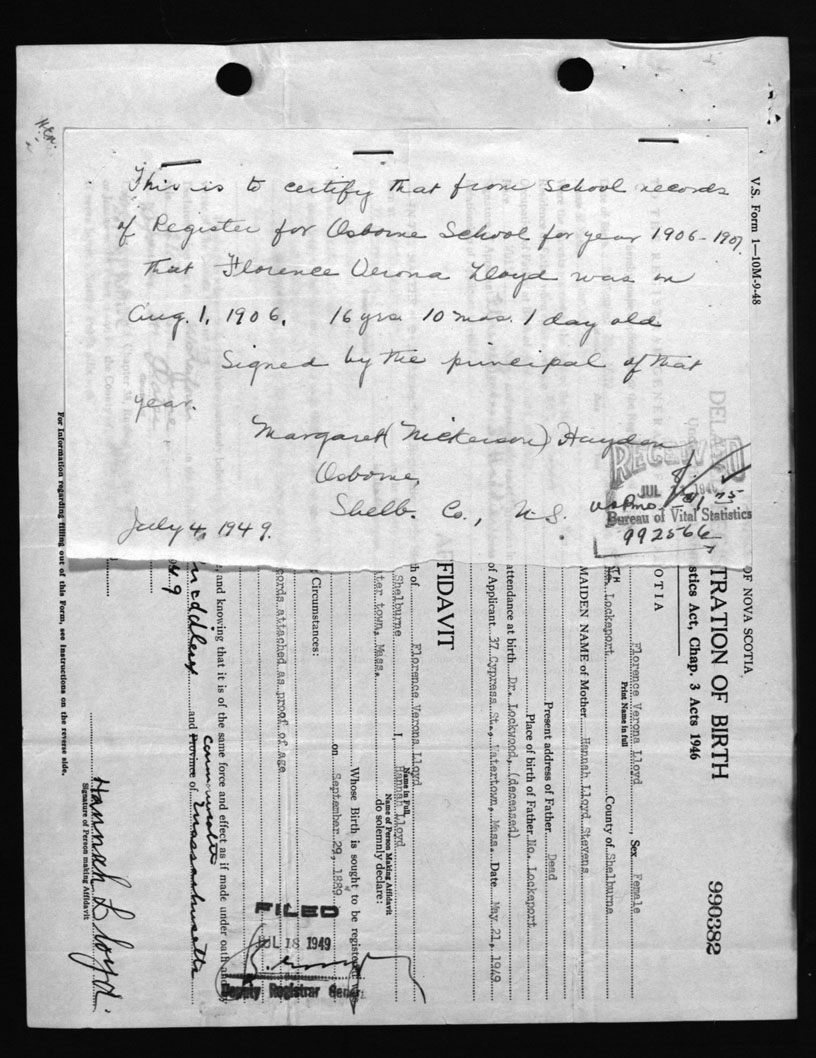 This is to certify that from school records
of Register for Osborne School for year 1906-1907
that Florence Verona Lloyd was on
Aug. 1, 1906, 16 yrs 10 mos. 1 day old
Signed by the principal of that
year.
Margaret (Nickerson) Haydon
Osborne,
Shelb. Co., N.S.
July 4, 1949.
RECEIVED
JUL
Bureau of Vital Statistics
992566
V.S. Form 1—10M-9-48
OF NOVA SCOTIA
TRATION OF BIRTH
990382
stics Act, Chap. 3 Acts 1946
OTIA
Florence Verona Lloyd, Sex Female
Print Name in full
Lockeport County of Shelburne
MAIDEN NAME of Mother Hannah Lloyd Stevens
Present address of Father Dead
Place of birth of Father No. Lockeport
attendance at birth Dr. Lockwood, (deceased)
of Applicant 37 Cypress St., Watertown, Mass. Date May 21, 1949
FIDAVIT
h of Florence Verona Lloyd
Name in Full
Shelburne I, Hannah Lloyd
Name of Person Making Affidavit
ter town, Mass. do solemnly declare:
Whose Birth is sought to be registered w
on September 29, 1889
Circumstances:
cords attached as proof of age
, and knowing that it is of the same force and effect as if made under oath and
Middlesex and Province of Massachusetts
Commonwealth
49
Hannah L Lloyd
Signature of Person making Affidavit
For Information regarding filling out of this Form, see Instructions on the reverse side.
FILED
JUL 18 1949
Deputy Registrar General